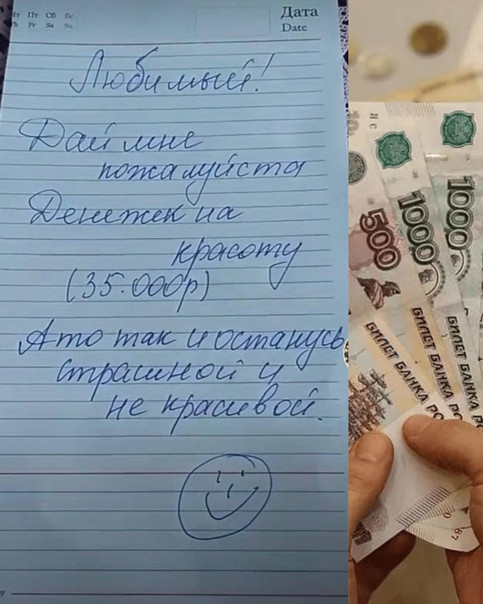 Пт Сб Вс
Fr Sa Su
Дата
Date
Любимый!
Дай мне
пожалуйста
Денежек на
красоту
(35.000р)
А то так и останусь
страшной и
не красивой.
500
1000
1000
БИЛЕТ БАНКА
БИЛЕТ БАНКА РО
БИЛЕТ БАНКА РО